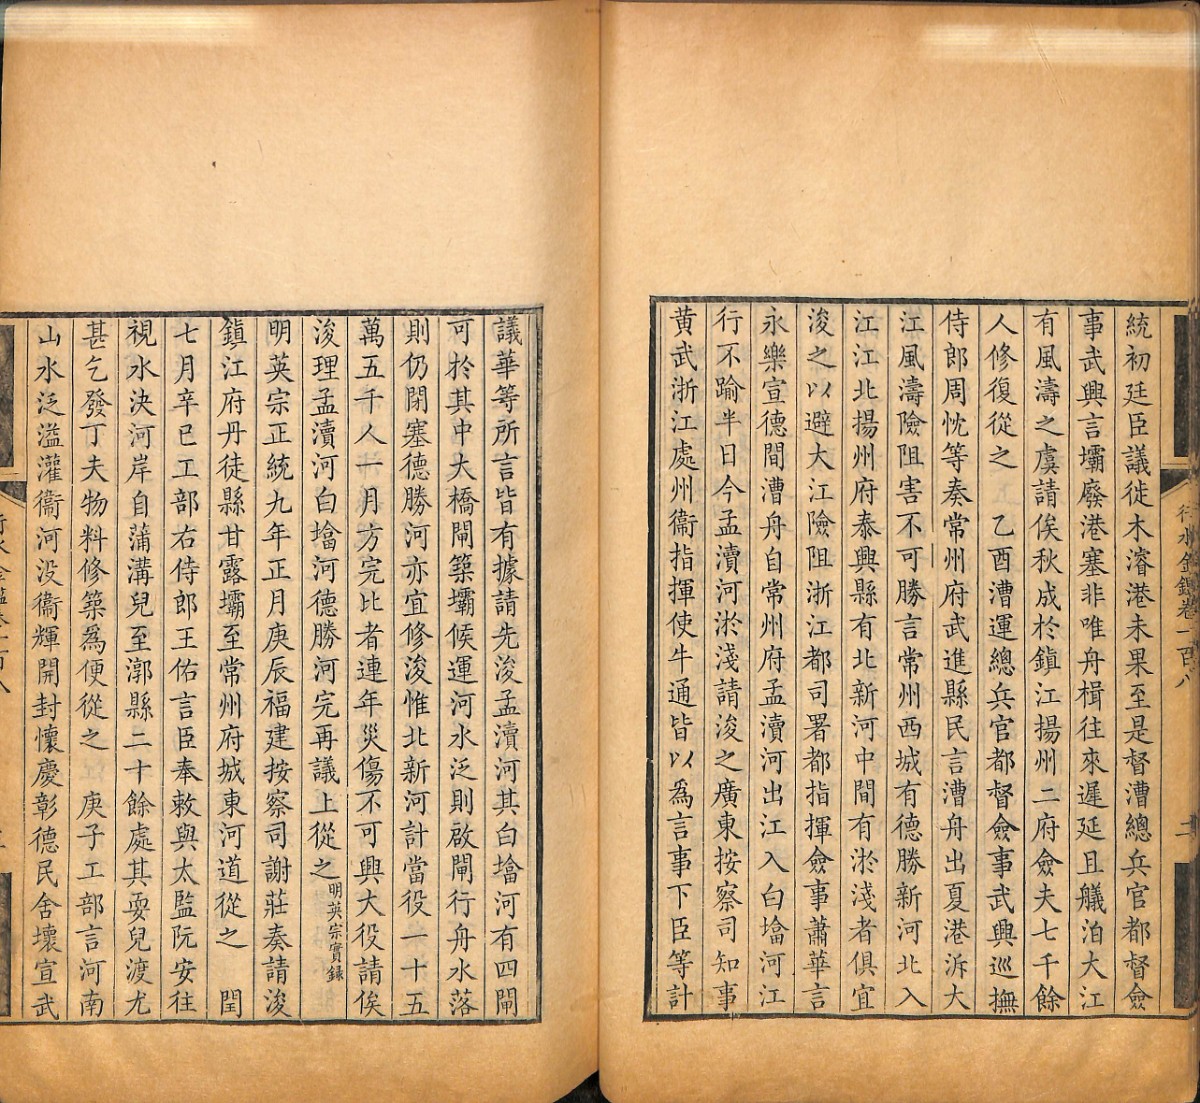 統初廷臣議徙木濬港未果至是督漕總兵官都督僉
事武興言壩廢港塞非唯舟楫往來遲延且艤泊大江
有風濤之虞請俟秋成於鎮江揚州二府僉夫七千餘
人修復從之　乙酉漕運總兵官都督僉事武興巡撫
侍郎周忱等奏常州府武進縣民言漕舟出夏港泝大
江風濤險阻害不可勝言常州西城有德勝新河北入
江江北揚州府泰興縣有北新河中間有淤淺者俱宜
浚之以避大江險阻浙江都司署都指揮僉事蕭華言
永樂宣德間漕舟自常州府孟瀆河出江入白塔河江
行不踰半日今孟瀆河淤淺請浚之廣東按察司知事
黃武浙江處州衞指揮使牛通皆以為言事下臣等計
行水金鑑卷一百八
二
議華等所言皆有據請先浚孟瀆河其白塔河有四閘
可於其中大橋閘築壩候運河水泛則啟閘行舟水落
則仍閉塞德勝河亦宜修浚惟北新河計當役一十五
萬五千人一月方完比者連年災傷不可興大役請俟
浚理孟瀆河白塔河德勝河完再議上從之明英宗實錄
明英宗正統九年正月庚辰福建按察司謝莊奏請浚
鎮江府丹徒縣甘露壩至常州府城東河道從之　閏
七月辛巳工部右侍郎王佑言臣奉敕與太監阮安往
視水決河岸自蒲溝兒至漷縣二十餘處其耍兒渡尤
甚乞發丁夫物料修築爲便從之　庚子工部言河南
山水泛溢灌衞河没衞輝開封懷慶彰德民舍壞宣武